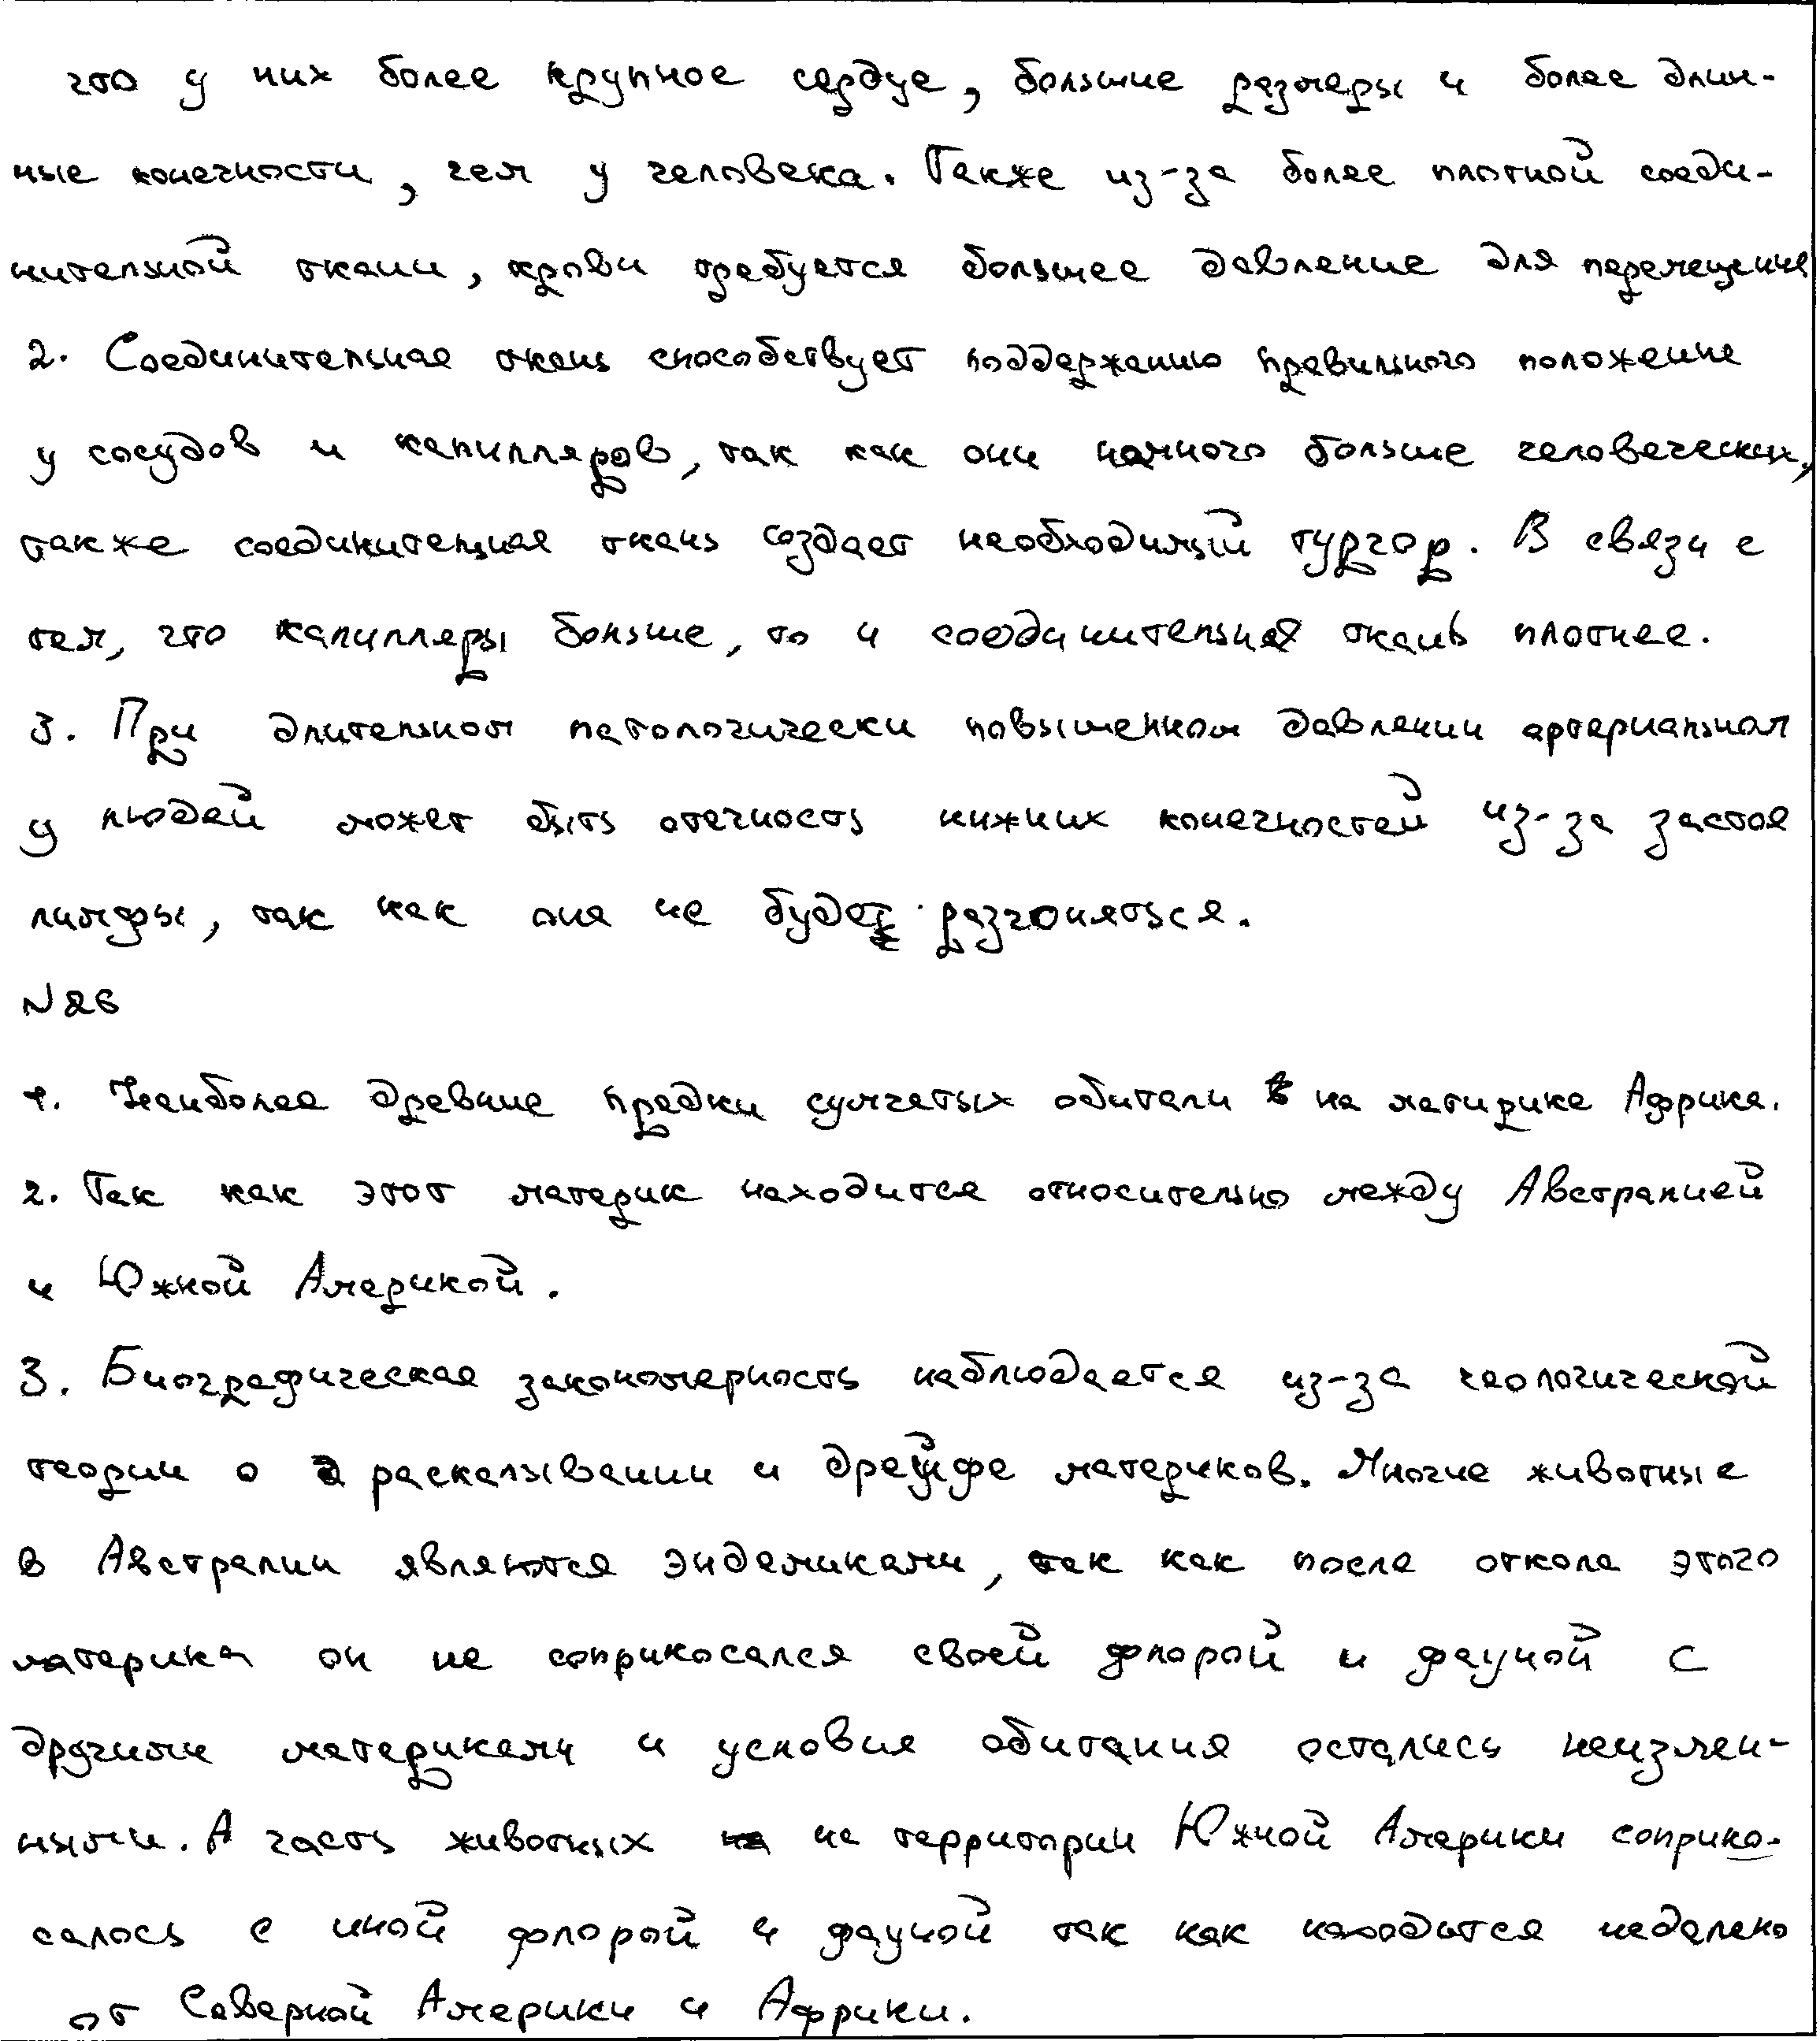 что у них более крупное сердце, большие размеры и более длин-
ные конечности, чем у человека. Также из-за более плотной соеди-
нительной ткани, крови требуется большее давление для перемещения
2. Соединительная ткань способствует поддержанию правильного положения
у сосудов и капилляров, так как они намного больше человеческих,
также соединительная ткань создает необходимый тургор. В связи с
тем, что капилляры больше, то и соединительная ткань плотнее.
3. При длительном патологически повышенном давлении артериальном
у людей может быть отечность нижних конечностей из-за застоя
лимфы, так как она не будет разгоняться.
N26
1. Наиболее древние предки сумчатых обитали на матирике Африка.
2. Так как этот материк находится относительно между Австралией
и Южной Америкой.
3. Биографическая закономерность наблюдается из-за геологической
теории о раскалывании и дрейфе материков. Многие животные
в Австралии являются эндемиками, так как после откола этого
материка он не соприкосался своей флорой и фауной с
другими материками и условия обитания остались неизмен-
ными. А часть животных на территории Южной Америки соприко-
салось с иной флорой и фауной так как находится недалеко
от Северной Америки и Африки.